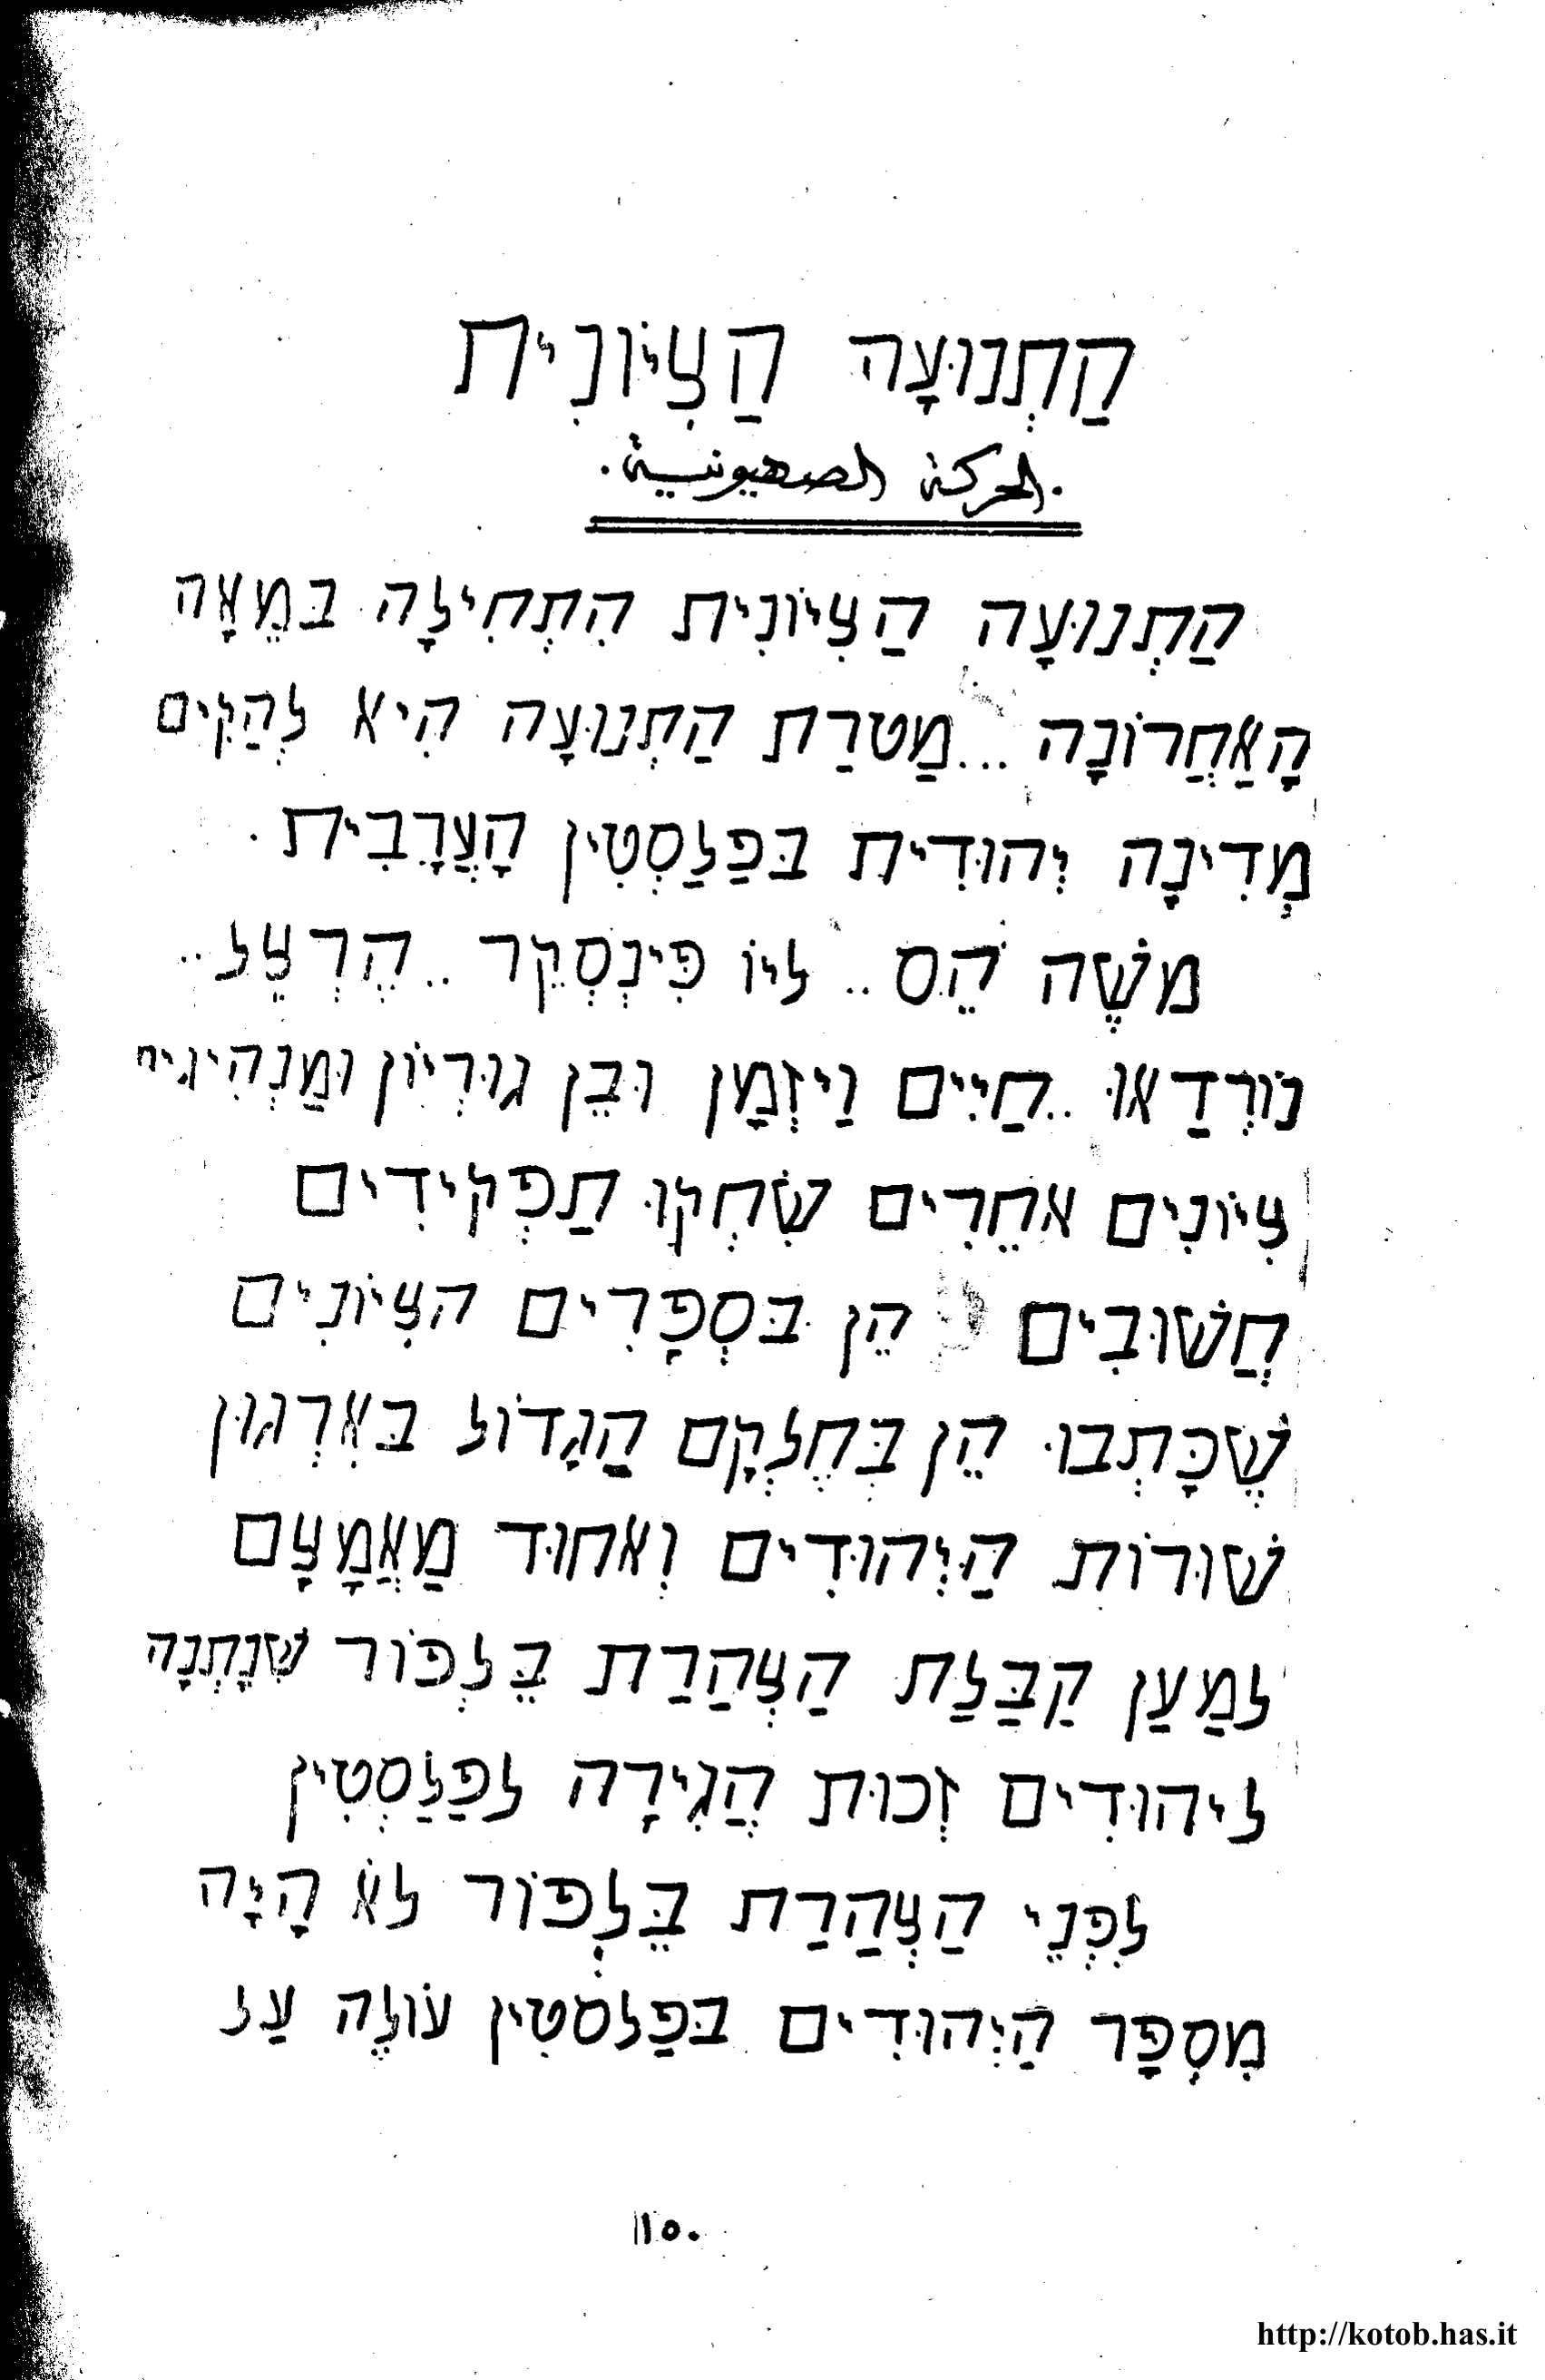 הַתְנוּעָה הַצִיוֹנִית
الحركة الصهيونية.
הַתְנוּעָה הַצִיוֹנִית הִתְחִילָה בּמֵאָה
הָאַחֲרוֹנָה ... מַטרַת הַתְנוּעָה הִיא לְהַקִים
מְדִינָה יְהוּדִית בּפַלַסְטִין הָעֲרָבִית .
משֶׁה הֵס .. ליוֹ פִּינְסְקֵר .. הֶרְצֶל ..
נוֹרְדַאוּ .. חַיִים וַיזְמָן וּבֵּן גוּרְיוֹן וּמַנְהִיגִים
צִיוֹנִים אחֵרִים שִׂחְקוּ תַפְקִידִים
חֲשׁוּבִים הֵן בּסְפָרִים הצִיוֹנִים
שֶׁכָּתְבוּ הֵן בְּחֶלְקָם הַגָדוֹל בּאִרְגוּן
שׁוּרוֹת הַיְהוּדִים וְאחוּד מַאֲמָצָם
למַעַן קַבַּלַת הַצְהַרַת בֵּלְפוֹר שׁנָתְנָה
ליהוּדִים זְכוּת הֲגִירָה לפַלַסְטִין
לִפְנֵי הַצְהַרַת בֵּלְפוֹר לֹא הָיָה
מִסְפָּר הַיְהוּדִים בּפַלסטִין עוֹלֶה עַל
١٥٠
http://kotob.has.it